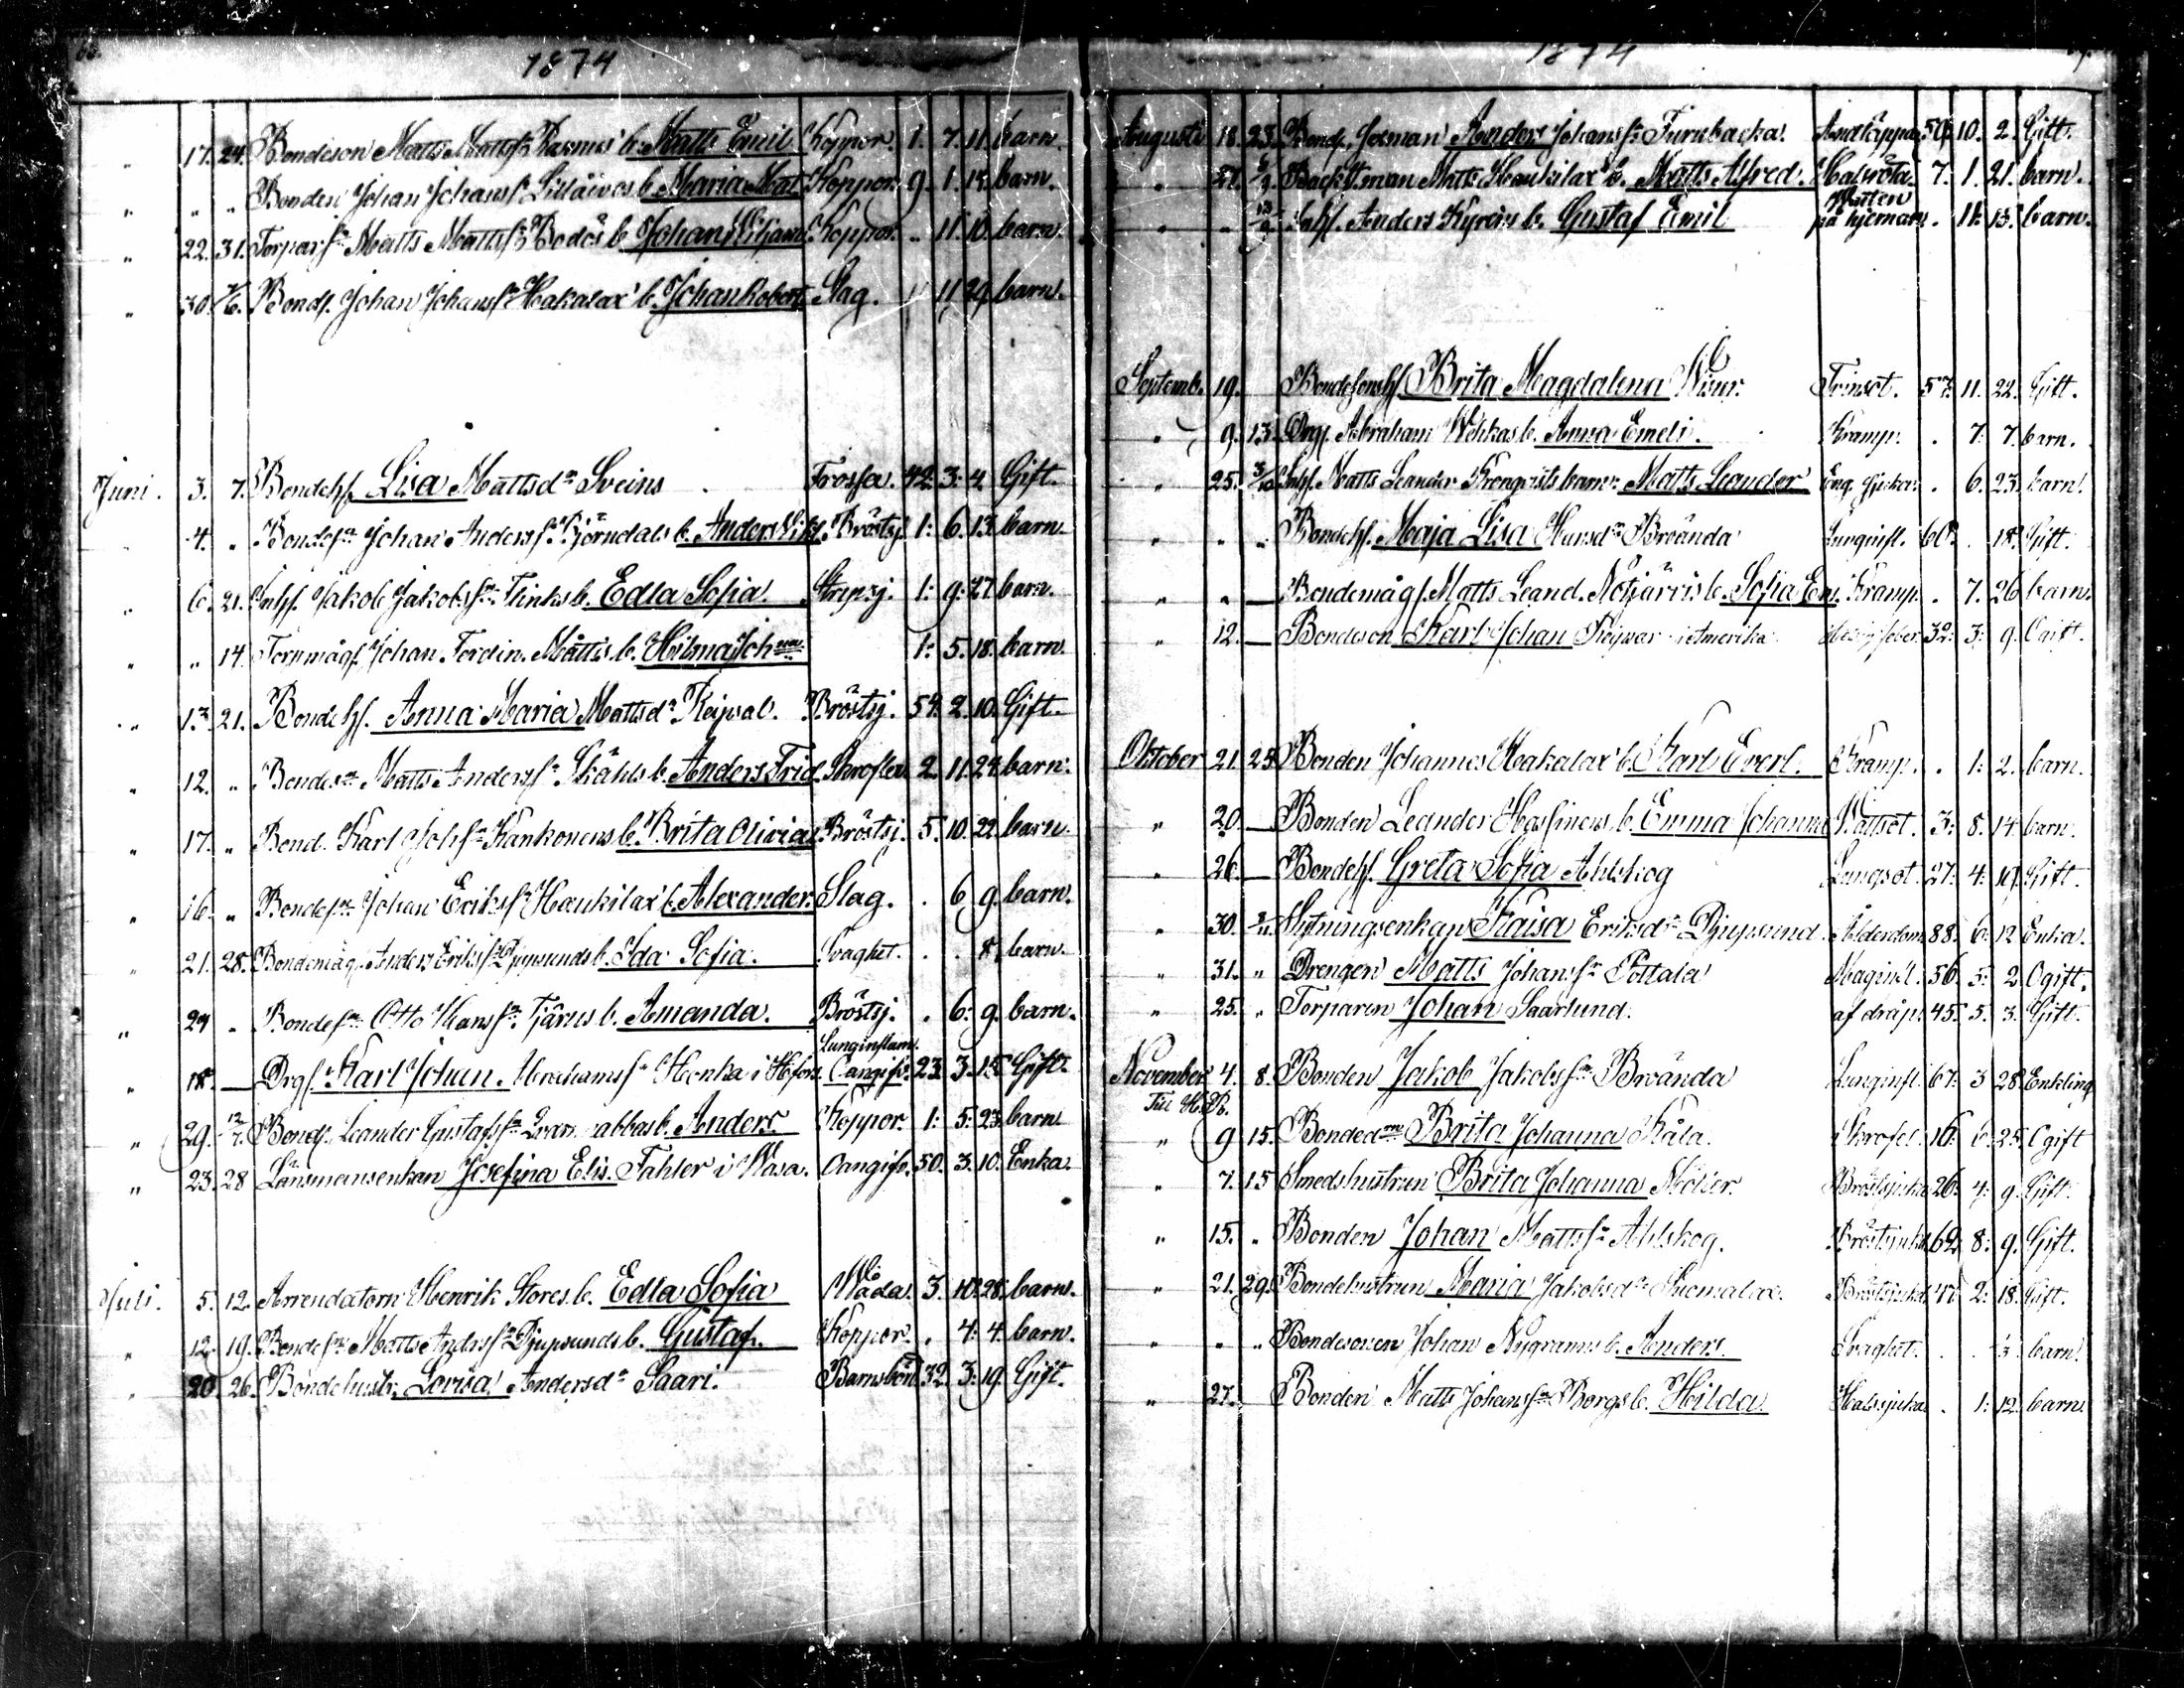 1874
" 17. 24. Bondeson Matts Mattss. Rasmus b. Matts Emil Koppor. 1. 7. 11. barn.
" " " Bonden Johan Johanss. b. Maria Mat. Koppor. 9. 1. 18. barn.
" 22. 31. Torpars. Matts Mattss. Bodös b. Johan Wiljam Koppor. " 11. 10. barn.
" 30. 7/6. Bonds. Johan Johanss. Hakalax b. Johan Robert Slag. 1 11. 29. barn.
Juni. 3. 7. Bondehf. Lisa Mattsdr. Sveins Frossa. 42. 3. 4 Gift.
" 4. " Bondesn. Johan Anderss. Björndals b. Anders Vikt. Bröstsj. 1: 6. 13. barn
" 6. 21. Inhs. Jakob Jakobssn. Flinks b. Edla Sofia. Strypsj. 1: 9: 27. barn.
" " 14. Torpmågs. Johan Ferdin. Mattis b. Hilma Johna 1: 5. 18. barn.
" 13. 21. Bondehf. Anna Maria Mattsdr. Keipval. Bröstsj. 54. 2. 10. Gift.
" 12. " Bondesn. Matts Anderss. Ståhls b. Anders Frid. Skrofler. 2. 11. 24. barn.
" 17. " Bond. Karl Johssn. Kankonens b. Brita Olivia Bröstsj. 5. 10. 22. barn.
" 16. " Bondesn. Johan Erikss. Haukilax b. Alexander Slag. . 6. 9. barn.
" 21. 28. Bondemåg. Anders Erikss. Djupsunds b. Ida Sofia. Svaghet. . . 8. barn.
" 24 " Bondesn. Otto Hanssn. Tjärus b. Amanda. Bröstsj. . 6: 9. barn.
" 18. — Drgs. Karl Johan Abrahamss. Honka i Hfors. Lunginflam. Oangifv. 23. 3. 15. Gift.
" 29. 12/7. Bonds. Leander Gustafssn. b. Anders Koppor. 1: 5: 23. barn
" 23. 28 Länsmansenkan Josefina Elis. Fahler i Wasa. Oangifv. 50. 3. 10. Enka.
Juli. 5. 12. Arrendatorn Henrik Stores b. Edla Sofia Wåda. 3. 10. 28. barn.
" 12. 19. Bondesn. Matts Anderss. Djupsunds b. Gustaf. Koppor. . 4: 4. barn.
" 20 26. Bondehustr. Lovisa Andersdr. Saari. Barnsbörd 32. 3: 19. Gift.
1874
Augusti 18. 23. Bonds. Anders Johanss. Furubacka. Andtäppa 50. 10. 2. Gift.
" 27. 6/9. Backstman Matts Haukilax b. Matts Alfred. Halsröta. 7. 1. 21. barn.
" " 13/9. Inhs. Anders b. Gustaf Emil Watten på hjernan . 11. 15. barn.
Septemb. 19. Bondesonshf. Brita Magdalena Wiur. Trinsot. 57. 11. 22. Gift.
" 9. 13. Drgs. Abraham Wehkas b. Anna Emeli. Kramp. . 7. 7. barn.
" 25. 3/10 Inhs. Matts Leander Kronqvists barn: Matts Leander Eng. sjukan . 6. 23. barn.
" " " Bondehf. Maja Lisa Hansdr. Broända Lunginfl. 60. . 18. Gift.
" " — Bondemågs. Matts Leand. Nötjärvis b. Sofia Em. Kramp. . 7. 26 barn.
" 12. — Bondeson Karl Johan i Amerika 32. 3: 9. Ogift.
Oktober 21. 25. Bonden Johannes Hakalax b. Karl Evert. Kramp. . 1: 2. barn.
" 20. — Bonden Leander Hassinens b. Emma Johanna Wattsot. 3: 8. 14. barn.
" 26. — Bondehf. Greta Sofia Ahlskog Lungsot. 27: 4: 19. Gift.
" 30. 2/11 Sytningsenkan Kaisa Eriksdr. Djupsund. Ålderdom 88. 6: 12 Enka.
" 31. " Drengen Matts Johanss. Pottala Maginfl. 56. 5: 2. Ogift.
" 25. " Torparen Johan Saarlund. af dråp. 45. 5. 3. Gift.
November 4. 8. Bonden Jakob Jakobssn. Broända Lunginfl. 67. 3 28. Enkling
Till H.B.
" 9 15. Bondedn. Brita Johanna Kåla. Skrofel. 16. 6. 25. Ogift
" 7. 15 Smedshustrun Brita Johanna Bröstsjuka 26. 4. 9. Gift.
" 15. " Bonden Johan Mattss. Ahlskog. Bröstsjuka 62. 8: 9. Gift.
" 21. 29. Bondehustrun Maria Jakobsdr. Bröstsjukd. 2. 18. Gift.
" " " Bondesonen Johan Nygranns b. Anders. Svaghet. . . 3. barn.
" 27. Bonden Matts Johanssn. Borgs b. Hilda Halssjuka . 1: 12. barn